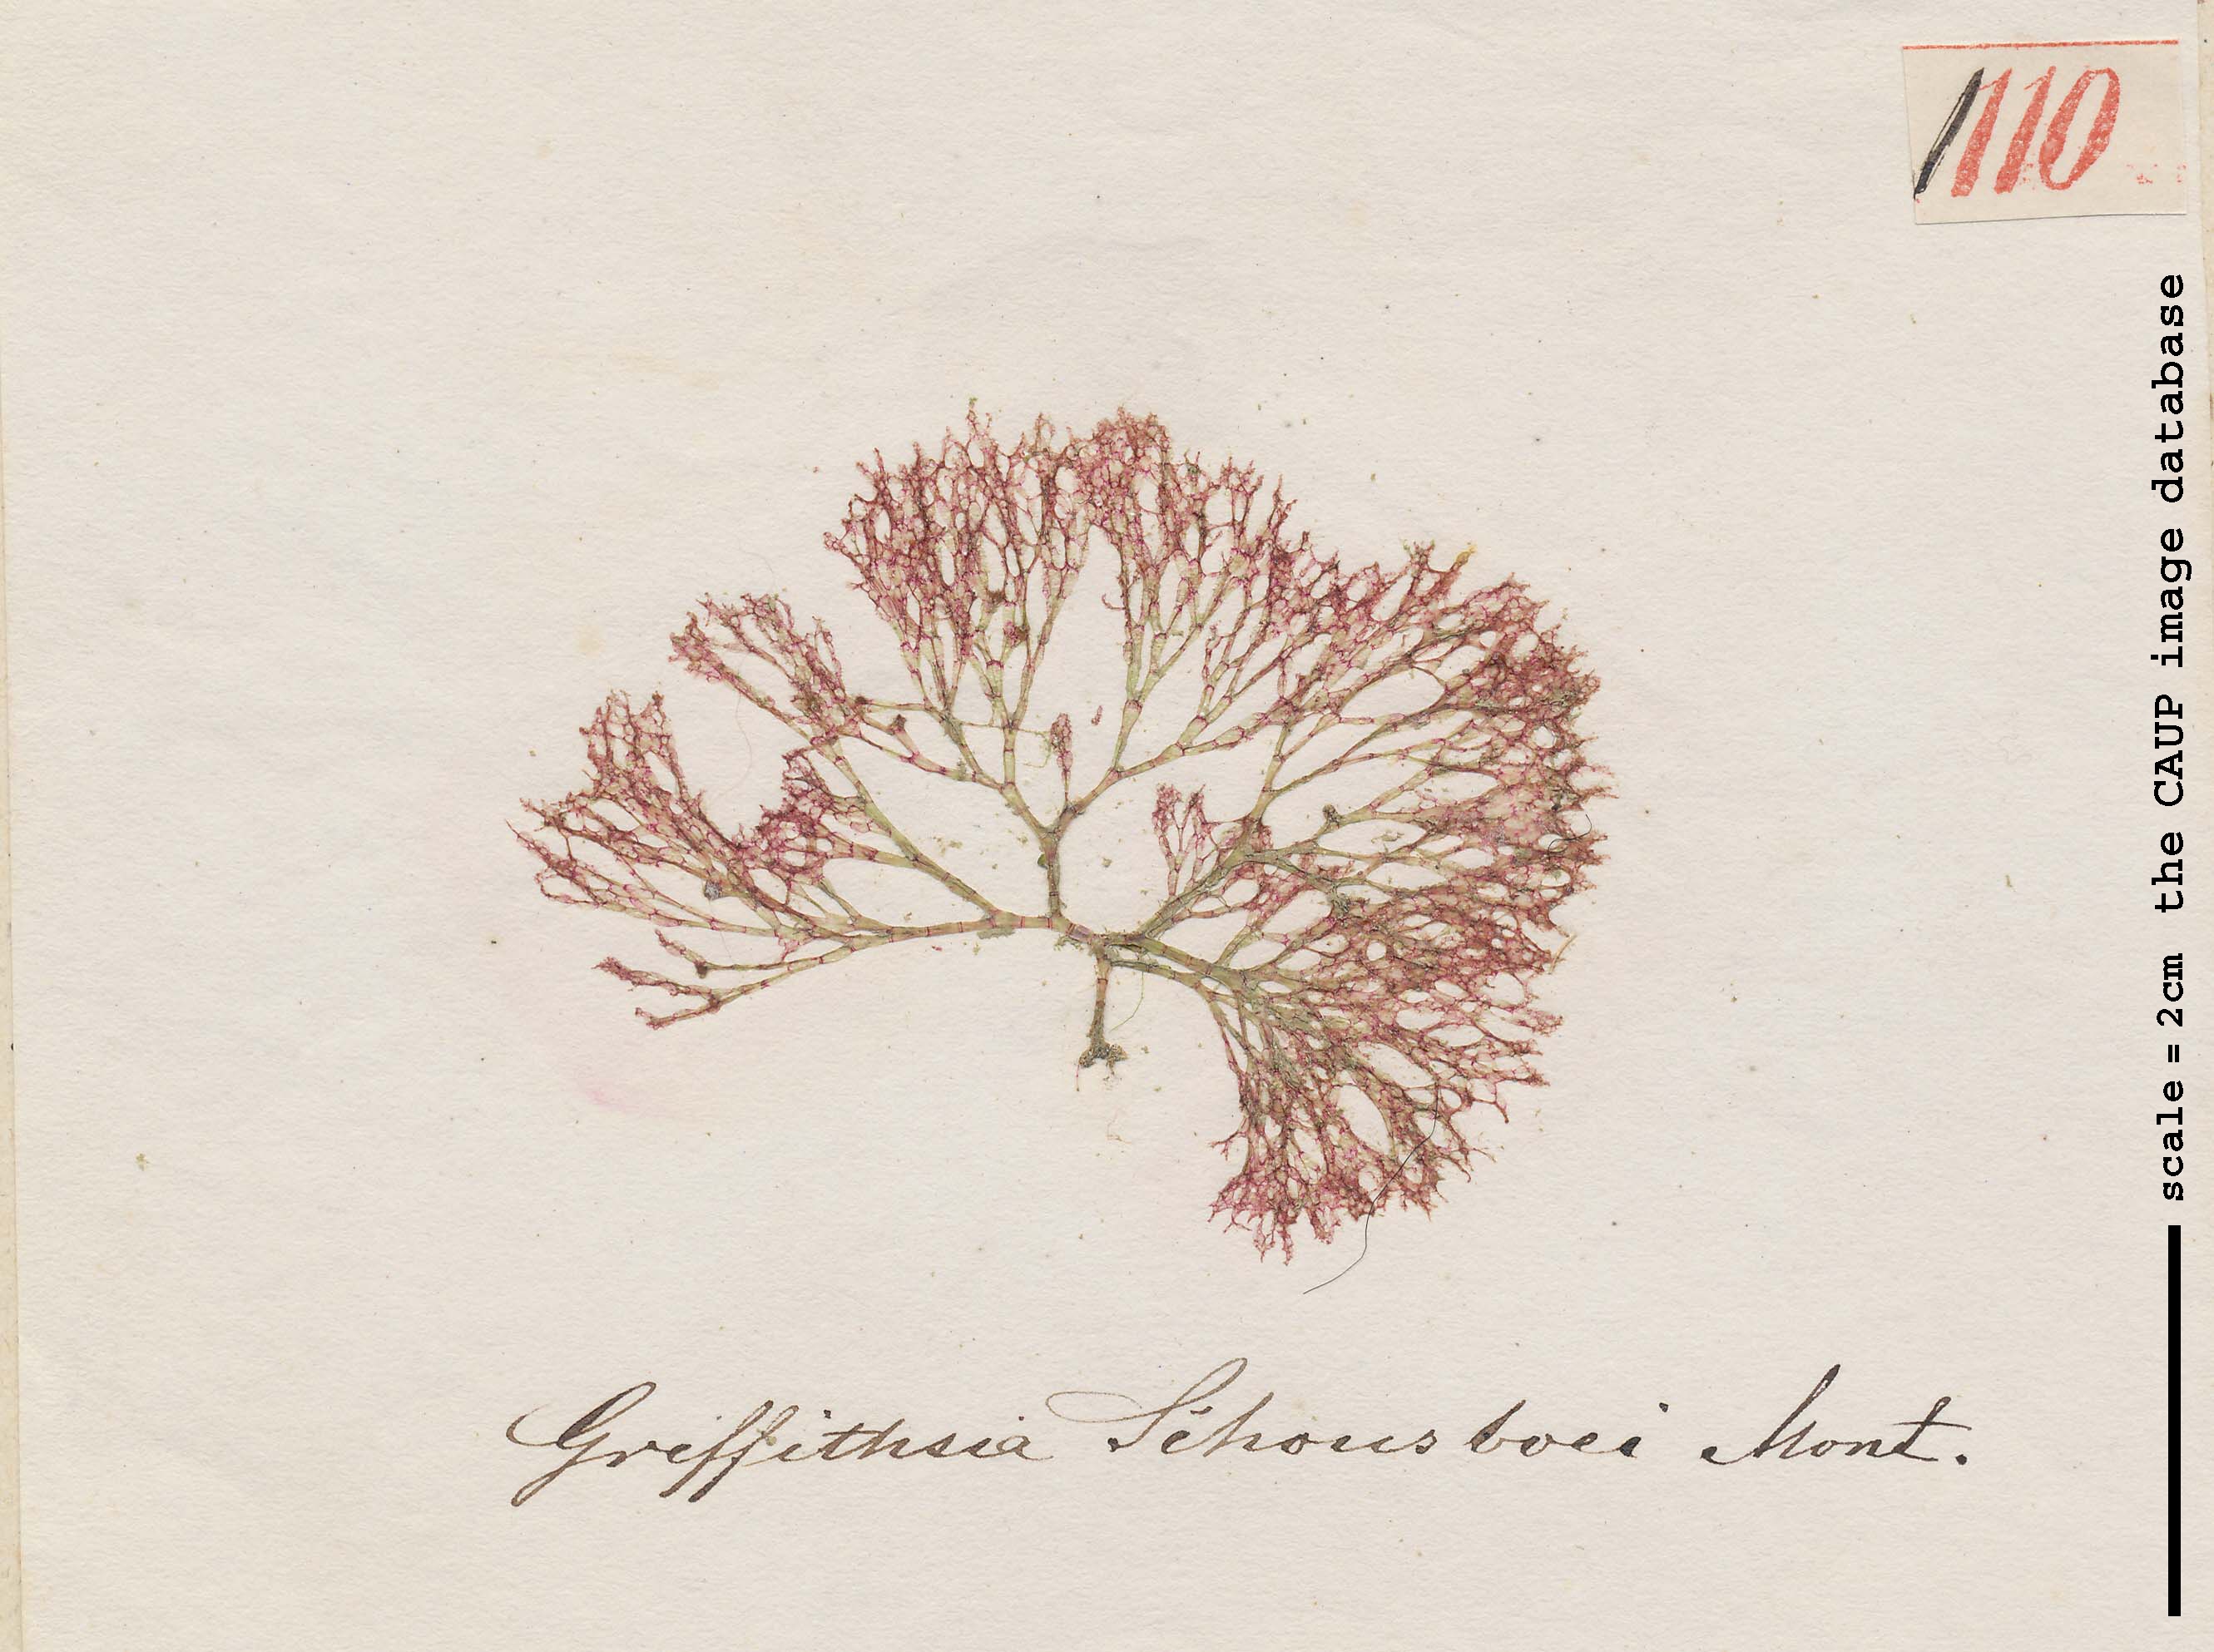 1110
scale = 2cm the CAUP image database
Griffithsia Schousboei Mont.